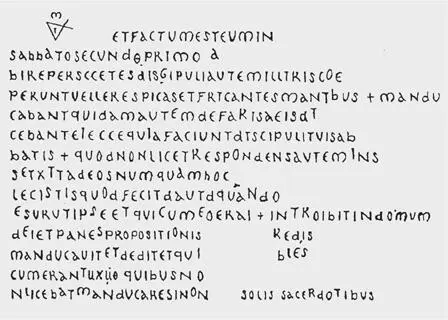 ETFACTUMESTEUMIN
SABBATOSECUNDOPRIMO A
BIREPERSCCETESDISGIPULIAUTEMILLTRISCOE
PERUNTVELLERESPICASETFRICANTESMANTBUS + MANDU
CABANTQUIDAMAUTEMDEFARISAEISDT
CEBANTELECCEQUIAFACIUNTDTSCIPULITUISAB
BATIS + QUODNONLICETRESPONDENSAUTEMINS
SETXTTADEOSNUMQUAMHOC
LECISTISQUODFECITDAUTDQUANDO
ESURUTIPSEETQUICUMEOERAI + INTROIBITINDOMUM
DEIETPANESPROPOSITIONIS REDIS
MANDUCAUITETDEDITETQUI BLES
CUMERANTUXUO QUIBUSNO
NLICEBATMANDUCARESINON SOLIS SACERDOTIBUS